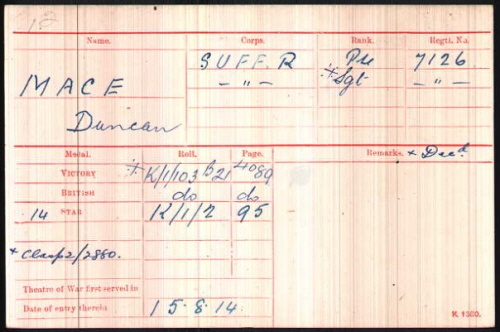 Name. Corps. Rank. Regtl. No.
SUFF. R Pte 7126
MACE —"— Sgt —"—
Duncan
Medal. Roll. Page. Remarks. x Decd.
VICTORY K/1/103 B21 4089
BRITISH do do
14 STAR K/1/2 95
x Clasp 2/2860.
Theatre of War first served in
Date of entry therein 15.8.14.
K. 1380.